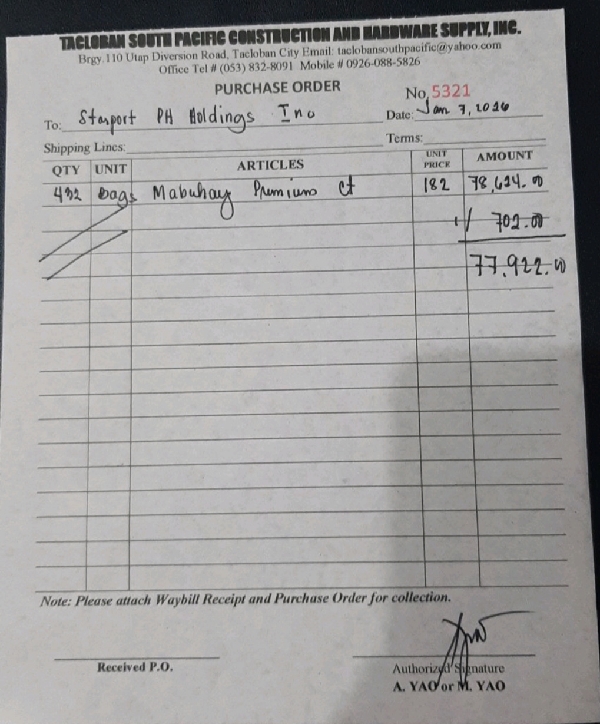 TACLOBAN SOUTH PACIFIC CONSTRUCTION AND HARDWARE SUPPLY, INC.
Brgy. 110 Utap Diversion Road, Tacloban City Email: taclobansouthpacific@yahoo.com
Office Tel # (053) 832-8091 Mobile # 0926-088-5826
PURCHASE ORDER
No. 5321
To: Starport PH Holdings Inc
Date: Jan 7, 2026
Shipping Lines:
Terms:
QTY UNIT ARTICLES UNIT PRICE AMOUNT
432 Bags Mabuhay Premium Ct 182 78,624.00
702.00
77,922.00
Note: Please attach Waybill Receipt and Purchase Order for collection.
Received P.O.
Authorized Signature
A. YAO or M. YAO